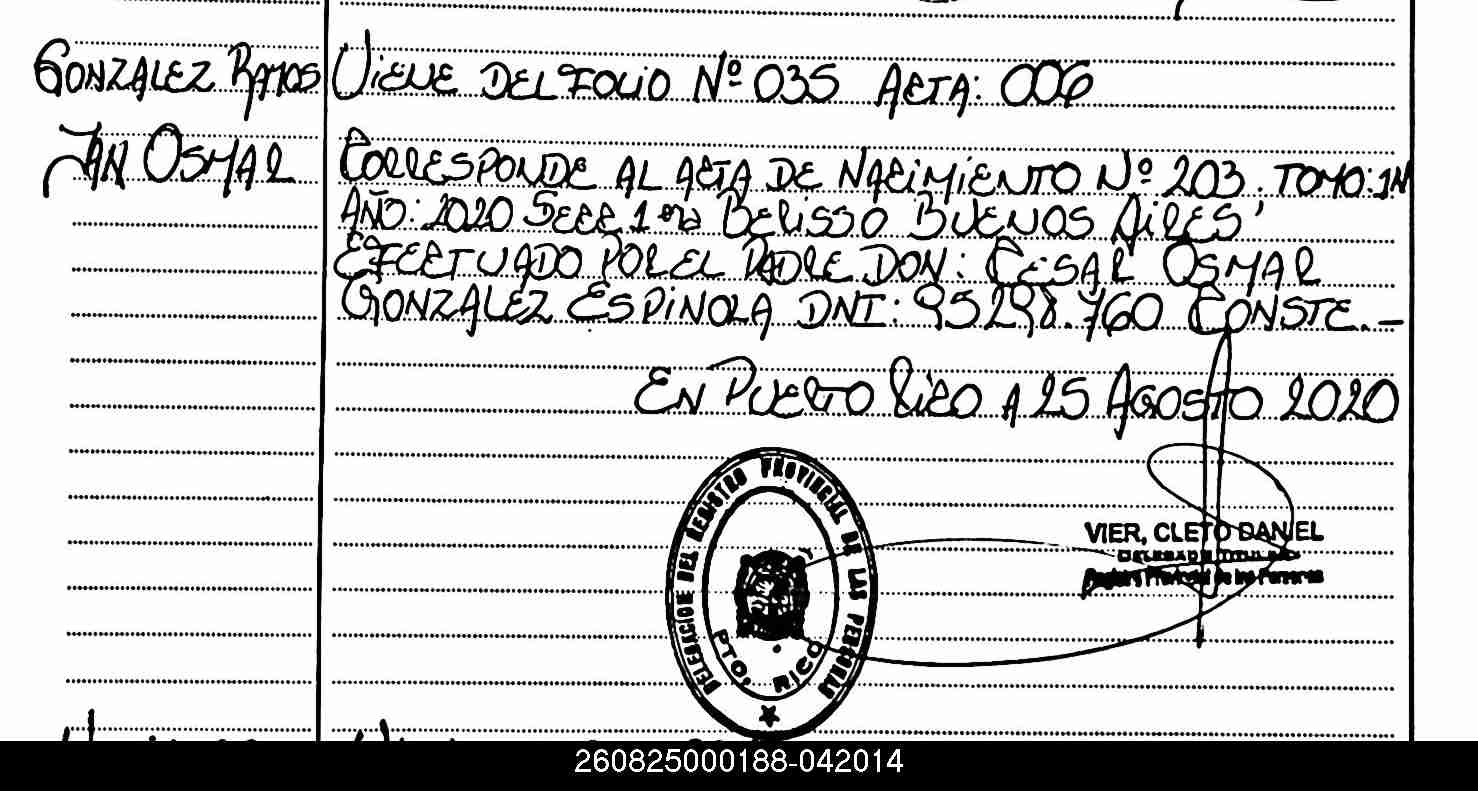 GONZALEZ RAMOS VIENE DEL FOLIO Nº 035 ACTA: 006
JAN OSMAR CORRESPONDE AL ACTA DE NACIMIENTO Nº 203. TOMO: 1N
AÑO: 2020 SECC 1era BERISSO BUENOS AIRES
EFECTUADO POR EL PADRE DON: CESAR OSMAR
GONZALEZ ESPINOLA DNI: 95298.760 CONSTE.-
EN PUERTO RICO A 25 AGOSTO 2020
DELEGACION DEL REGISTRO PROVINCIAL DE LAS PERSONAS
PTO. RICO
VIER, CLETO DANIEL
DELEGADO TITULAR
Registro Provincial de las Personas
260825000188-042014